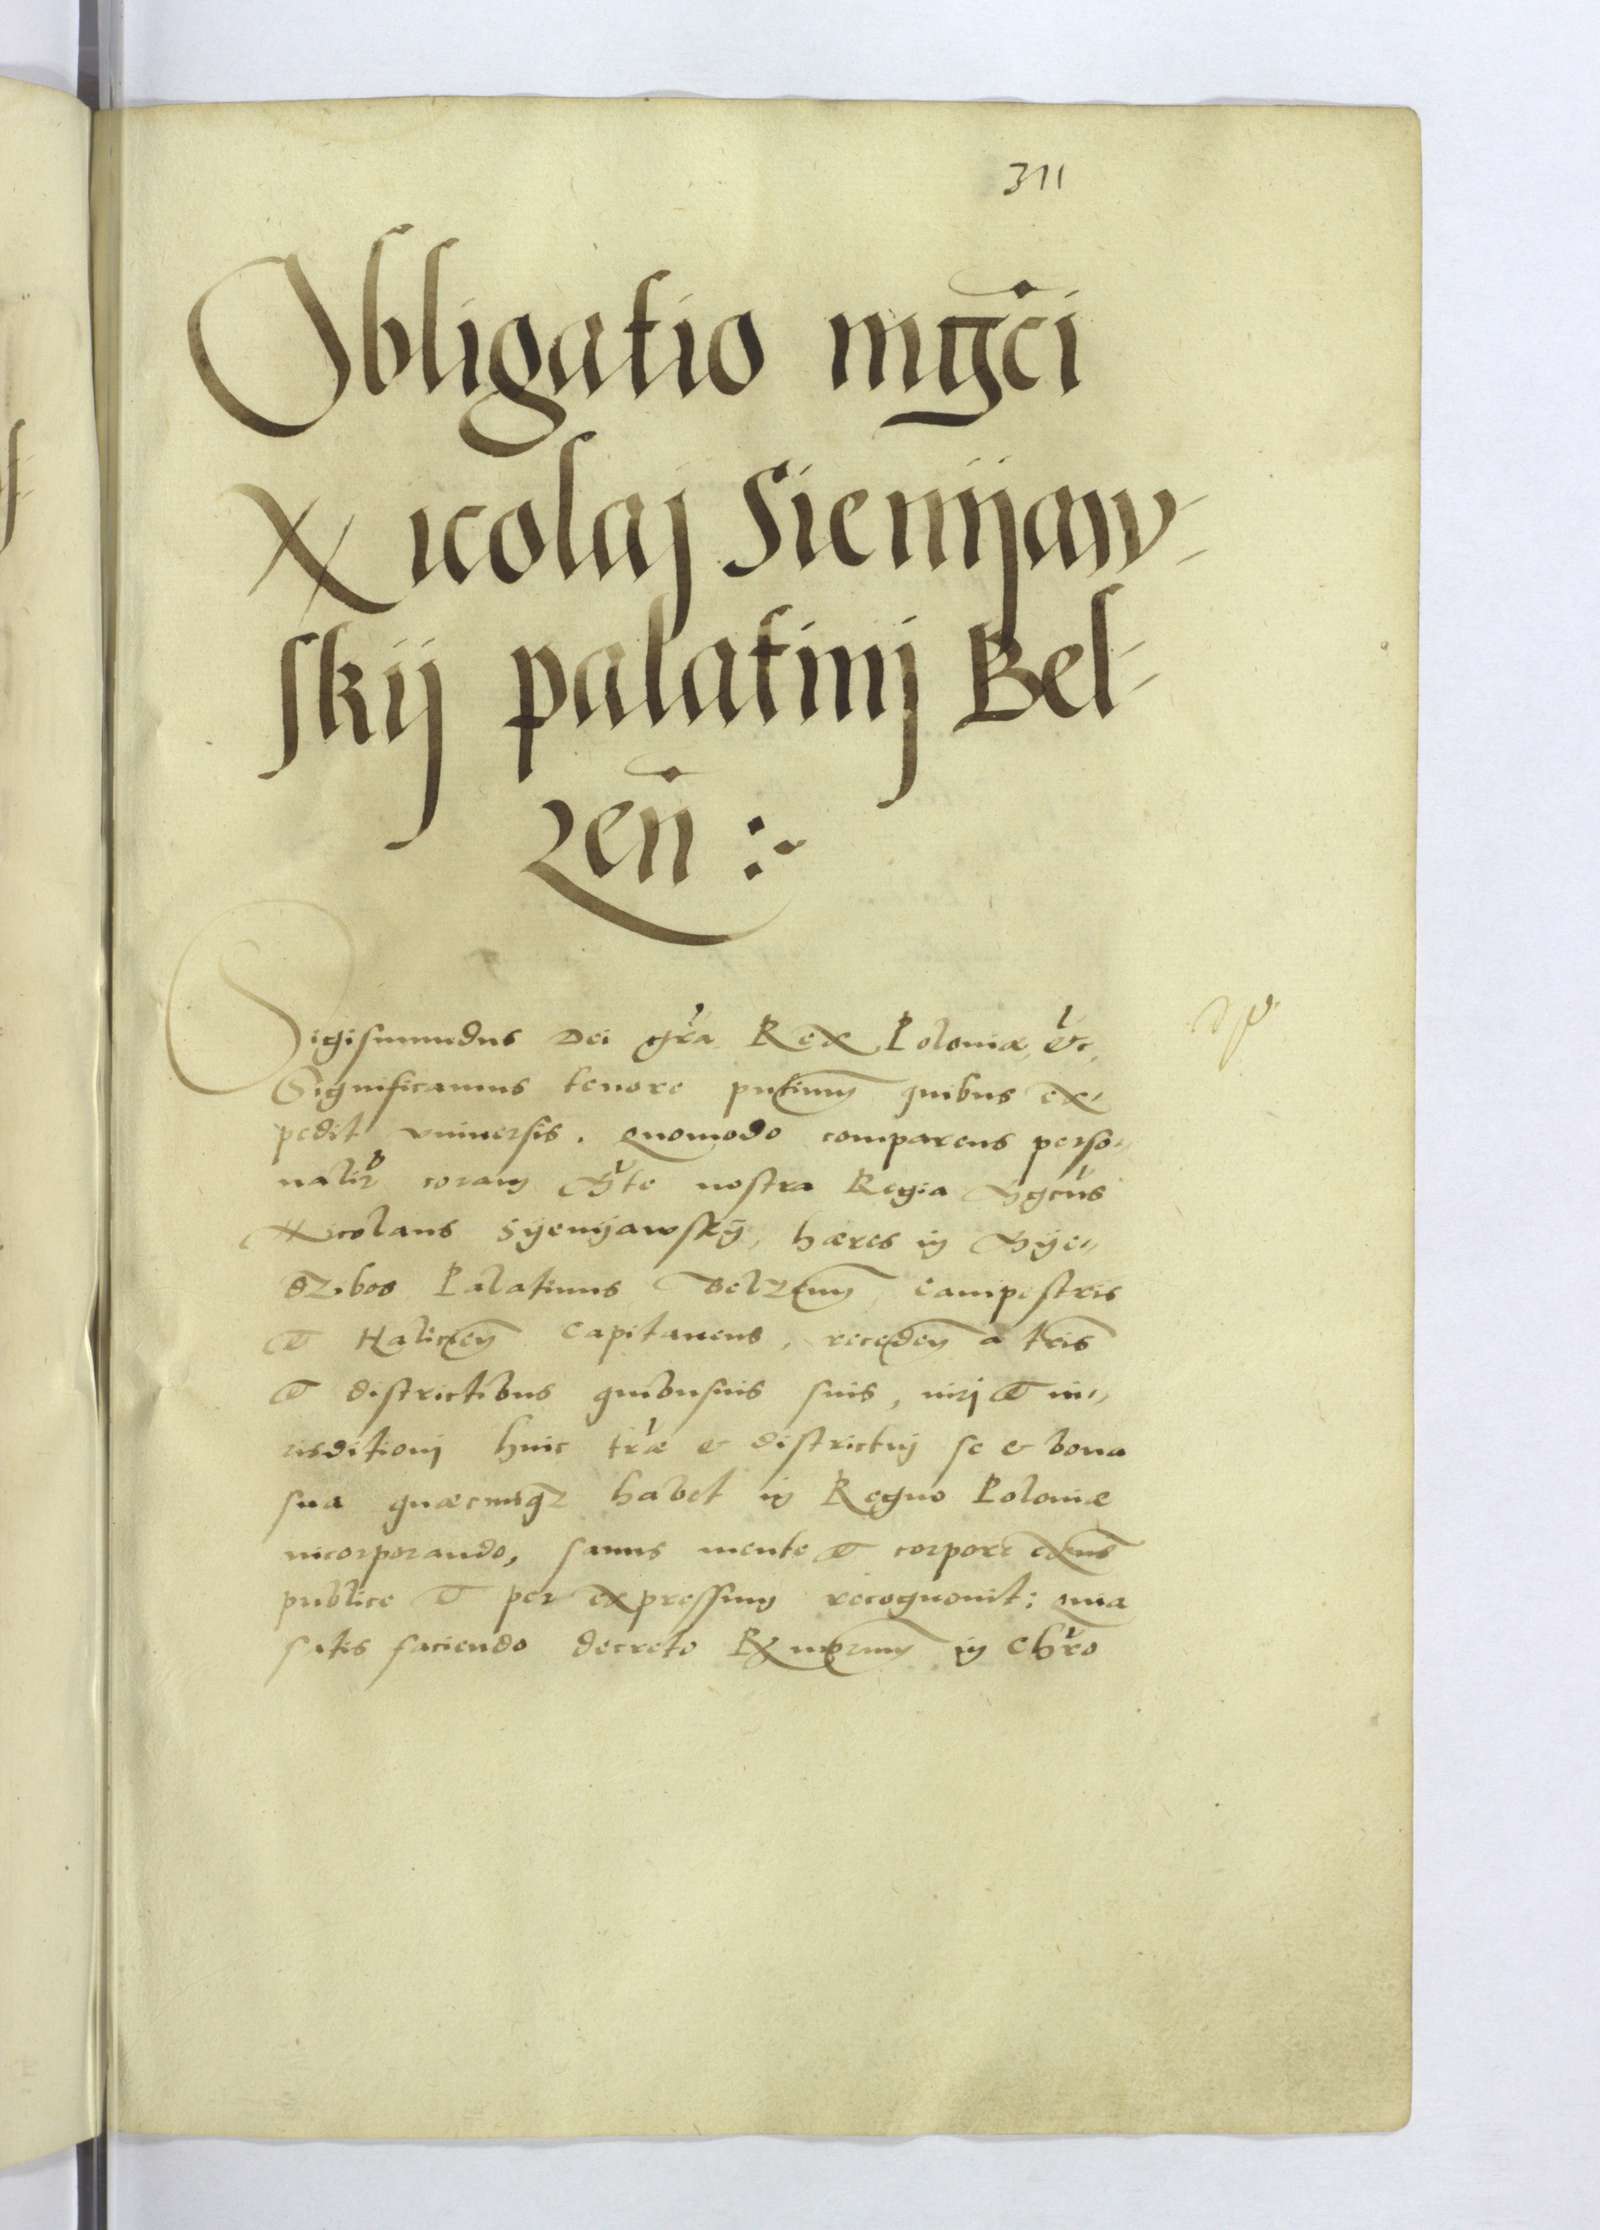 311
Obligatio mgci
Nicolaj Sienijaw-
skij palatinj Bel-
zen̄ :~
Sigismundus Dei gra Rex Poloniæ, etc
Significamus tenore pntium quibus ex-
pedit vniuersis. Quomodo comparens perso-
naliter coram Mte nostra Regia Mgcus
Nicolaus Syenijawskÿ, hæres in Mije-
dzibos Palatinus Belzen̄ Campestris
et Halicien̄ Capitaneus, receden̄ a tris
et districtibus quibusuis suis, iurj et iu-
risditionj huic træ & districtuj se & bona
sua quæcunq3 habet in Regno Poloniæ
incorporando, sanus mente et corpore exn̄s
publice et per expressum recognouit: Quia
satis faciendo decreto in Chro